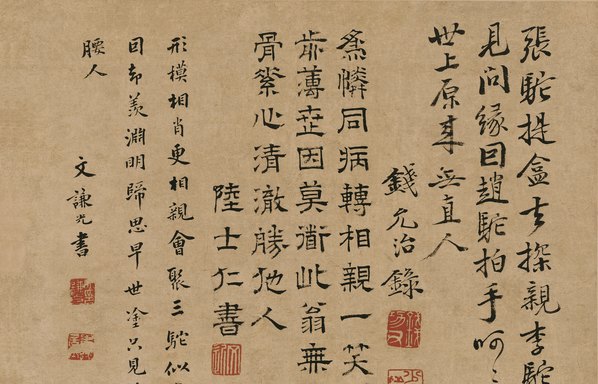 張駝提盒去探親李駝
見問緣囙趙駝拍手呵
世上原来無直人
錢允治錄
為憐同病轉相親一笑
歬薄世因莫衟此翁無
骨素心清澈勝他人
陸士仁書
形模相肖更相親會聚三駝似
囙却羨淵明歸思早世塗只見
腰人
文謙光書